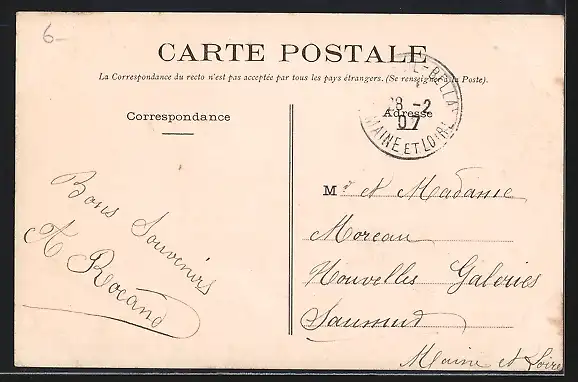 6-
CARTE POSTALE
La Correspondance du recto n'est pas acceptée par tous les pays étrangers. (Se renseigner à la Poste).
Correspondance
Adresse
28 -2
07
MAINE ET LOIRE
Bons Souvenirs
A Rocand
Mr et Madame
Moreau
Nouvelles Galeries
Saumur
Maine et Loire